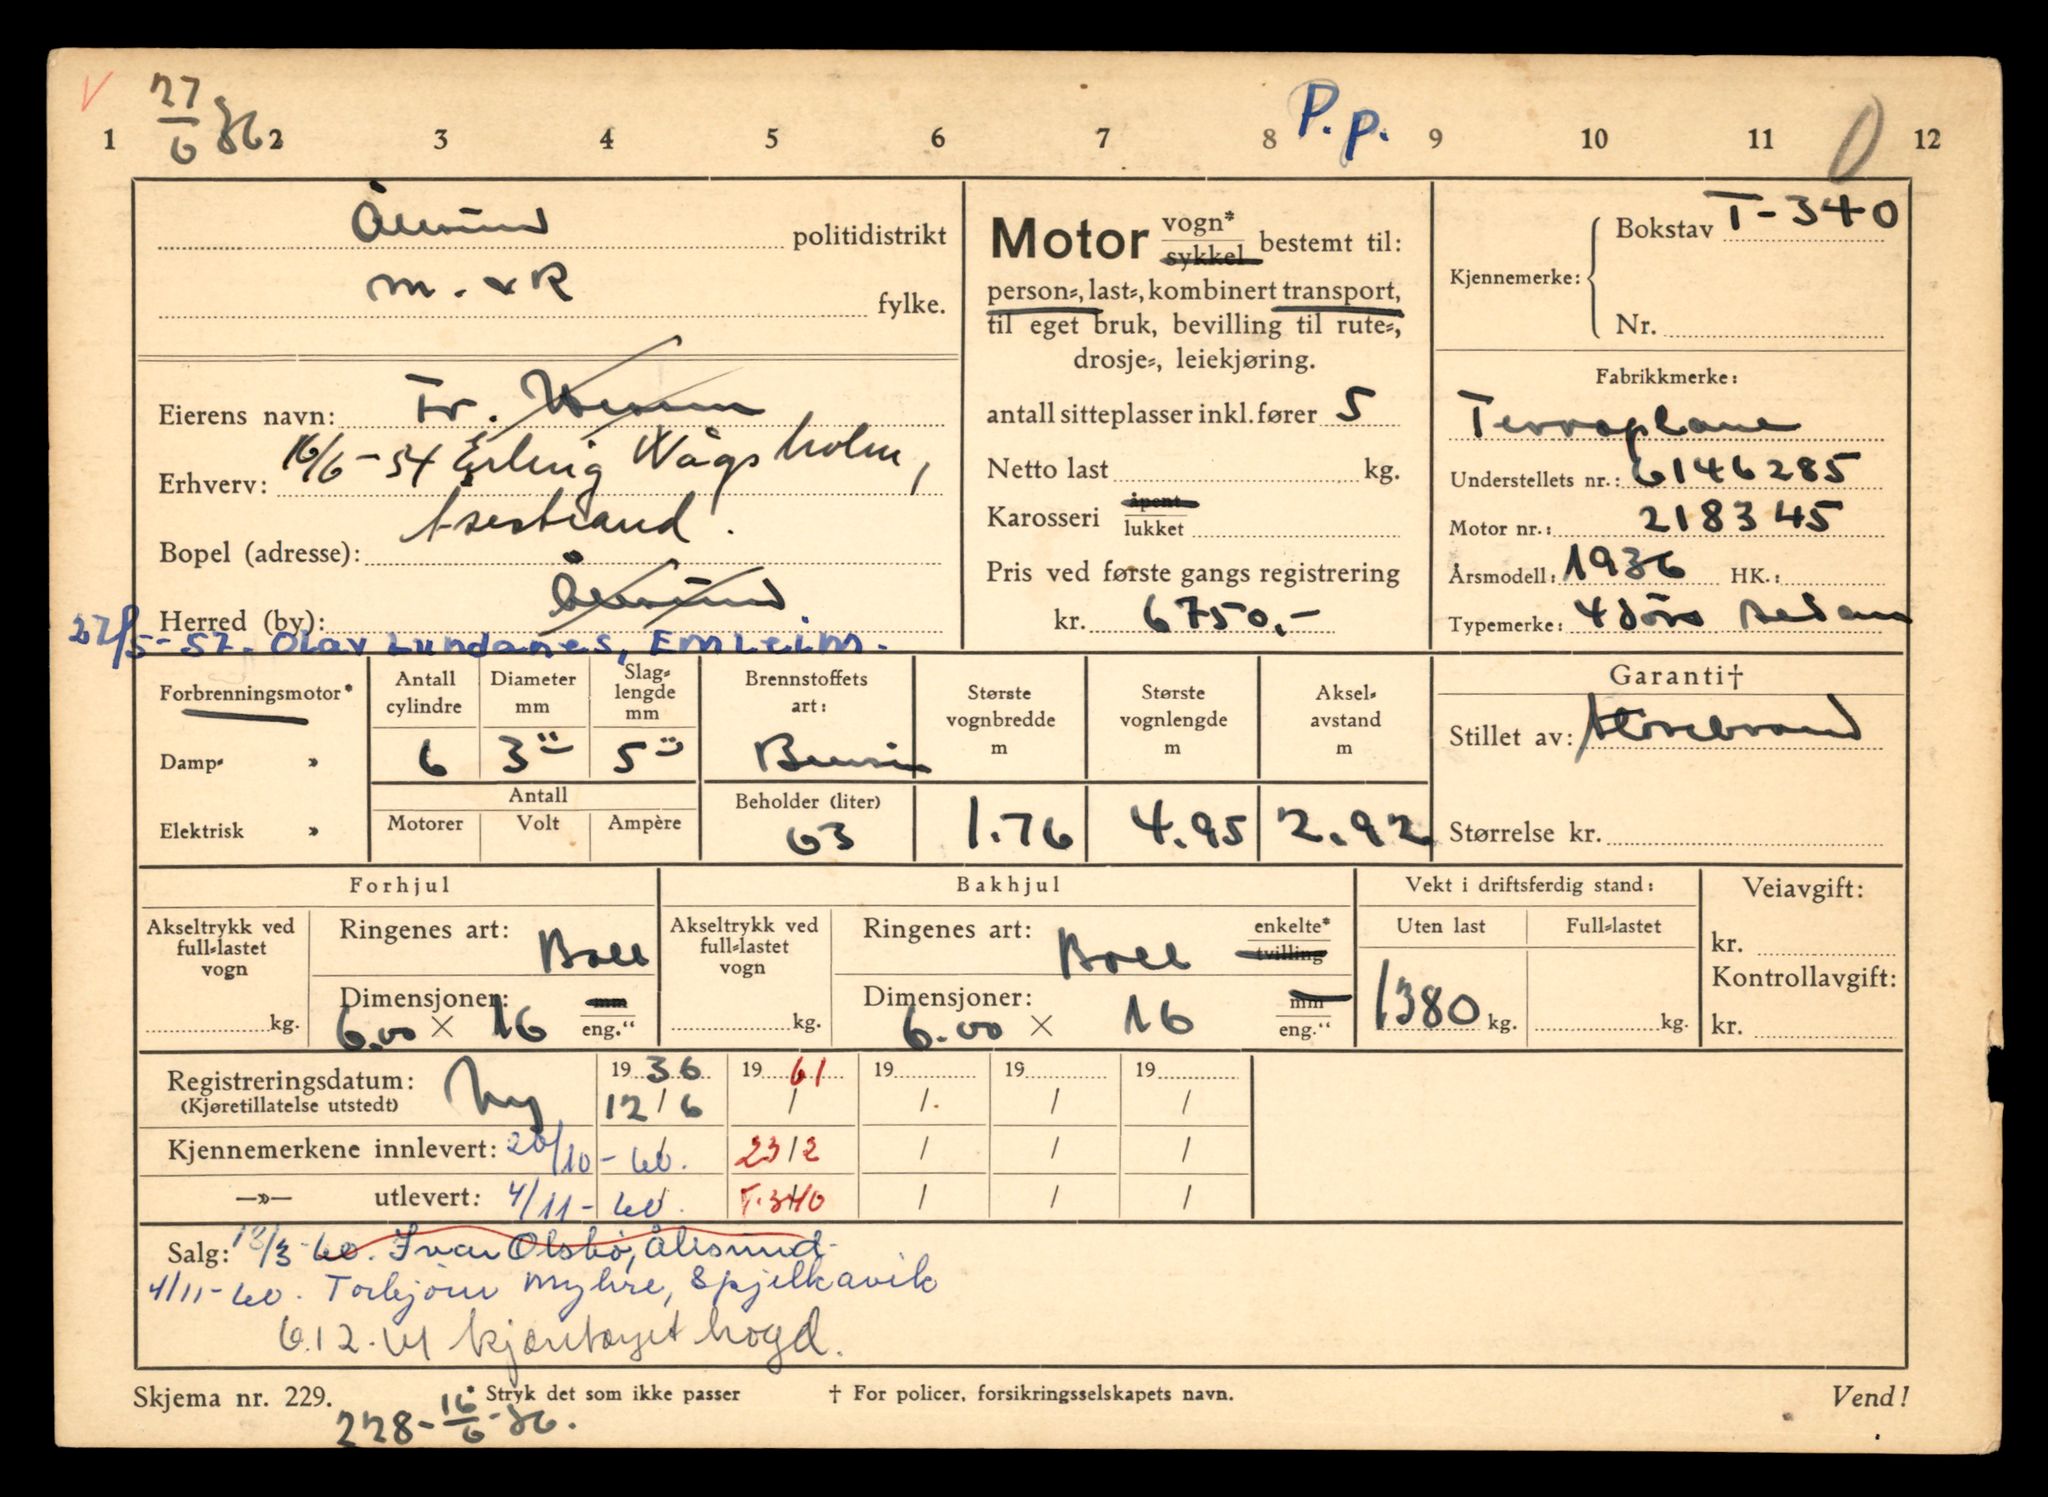 V 27/6 36
1 2 3 4 5 6 7 8 P.p. 9 10 11 12
Ålesund politidistrikt
M. & R fylke.
Eierens navn: Fr.
16/6-54 Erling Vågsholm,
Erhverv:
Bopel (adresse): Asestrand.
Herred (by): Ålesund
27/5-57. Olav Lundanes, Emleim.
Motor vogn* sykkel bestemt til:
person-, last-, kombinert transport,
til eget bruk, bevilling til rute-,
drosje-, leiekjøring.
antall sitteplasser inkl. fører 5
Netto last kg.
Karosseri åpent lukket
Pris ved første gangs registrering
kr. 6750,-
Kjennemerke: Bokstav T-340
Nr.
Fabrikkmerke:
Terraplane
Understellets nr.: 6146285
Motor nr.: 218345
Årsmodell: 1936 HK.:
Typemerke: 4 dørs sedan
Forbrenningsmotor*
Damp- »
Elektrisk »
Antall cylindre 6
Diameter mm 3"
Slaglengde mm 5"
Antall
Motorer Volt Ampère
Brennstoffets art: Bensin
Beholder (liter) 63
Største vognbredde m 1.76
Største vognlengde m 4.95
Akselavstand m 2.92
Garanti†
Stillet av: Storebrand
Størrelse kr.
Forhjul
Akseltrykk ved full-lastet vogn kg.
Ringenes art: Boll
Dimensjoner: mm
6.00 × 16 eng."
Bakhjul
Akseltrykk ved full-lastet vogn kg.
Ringenes art: Boll enkelte* tvilling
Dimensjoner: mm
6.00 × 16 eng."
Vekt i driftsferdig stand:
Uten last Full-lastet
1380 kg. kg.
Veiavgift:
kr.
Kontrollavgift:
kr.
Registreringsdatum: Ny 1936 1961 19 19 19
(Kjøretillatelse utstedt) 12/6 / / / /
Kjennemerkene innlevert: 20/10-60. 23/2 / / /
—»— utlevert: 4/11-60. T.340 / / /
Salg: 18/3-60. Ivar Olsbø, Ålesund
4/11-60. Torbjörn Myhre, Spjelkavik
6.12.61 kjøretøyet hogd.
Skjema nr. 229. * Stryk det som ikke passer † For policer, forsikringsselskapets navn. Vend!
228-16/6-36.